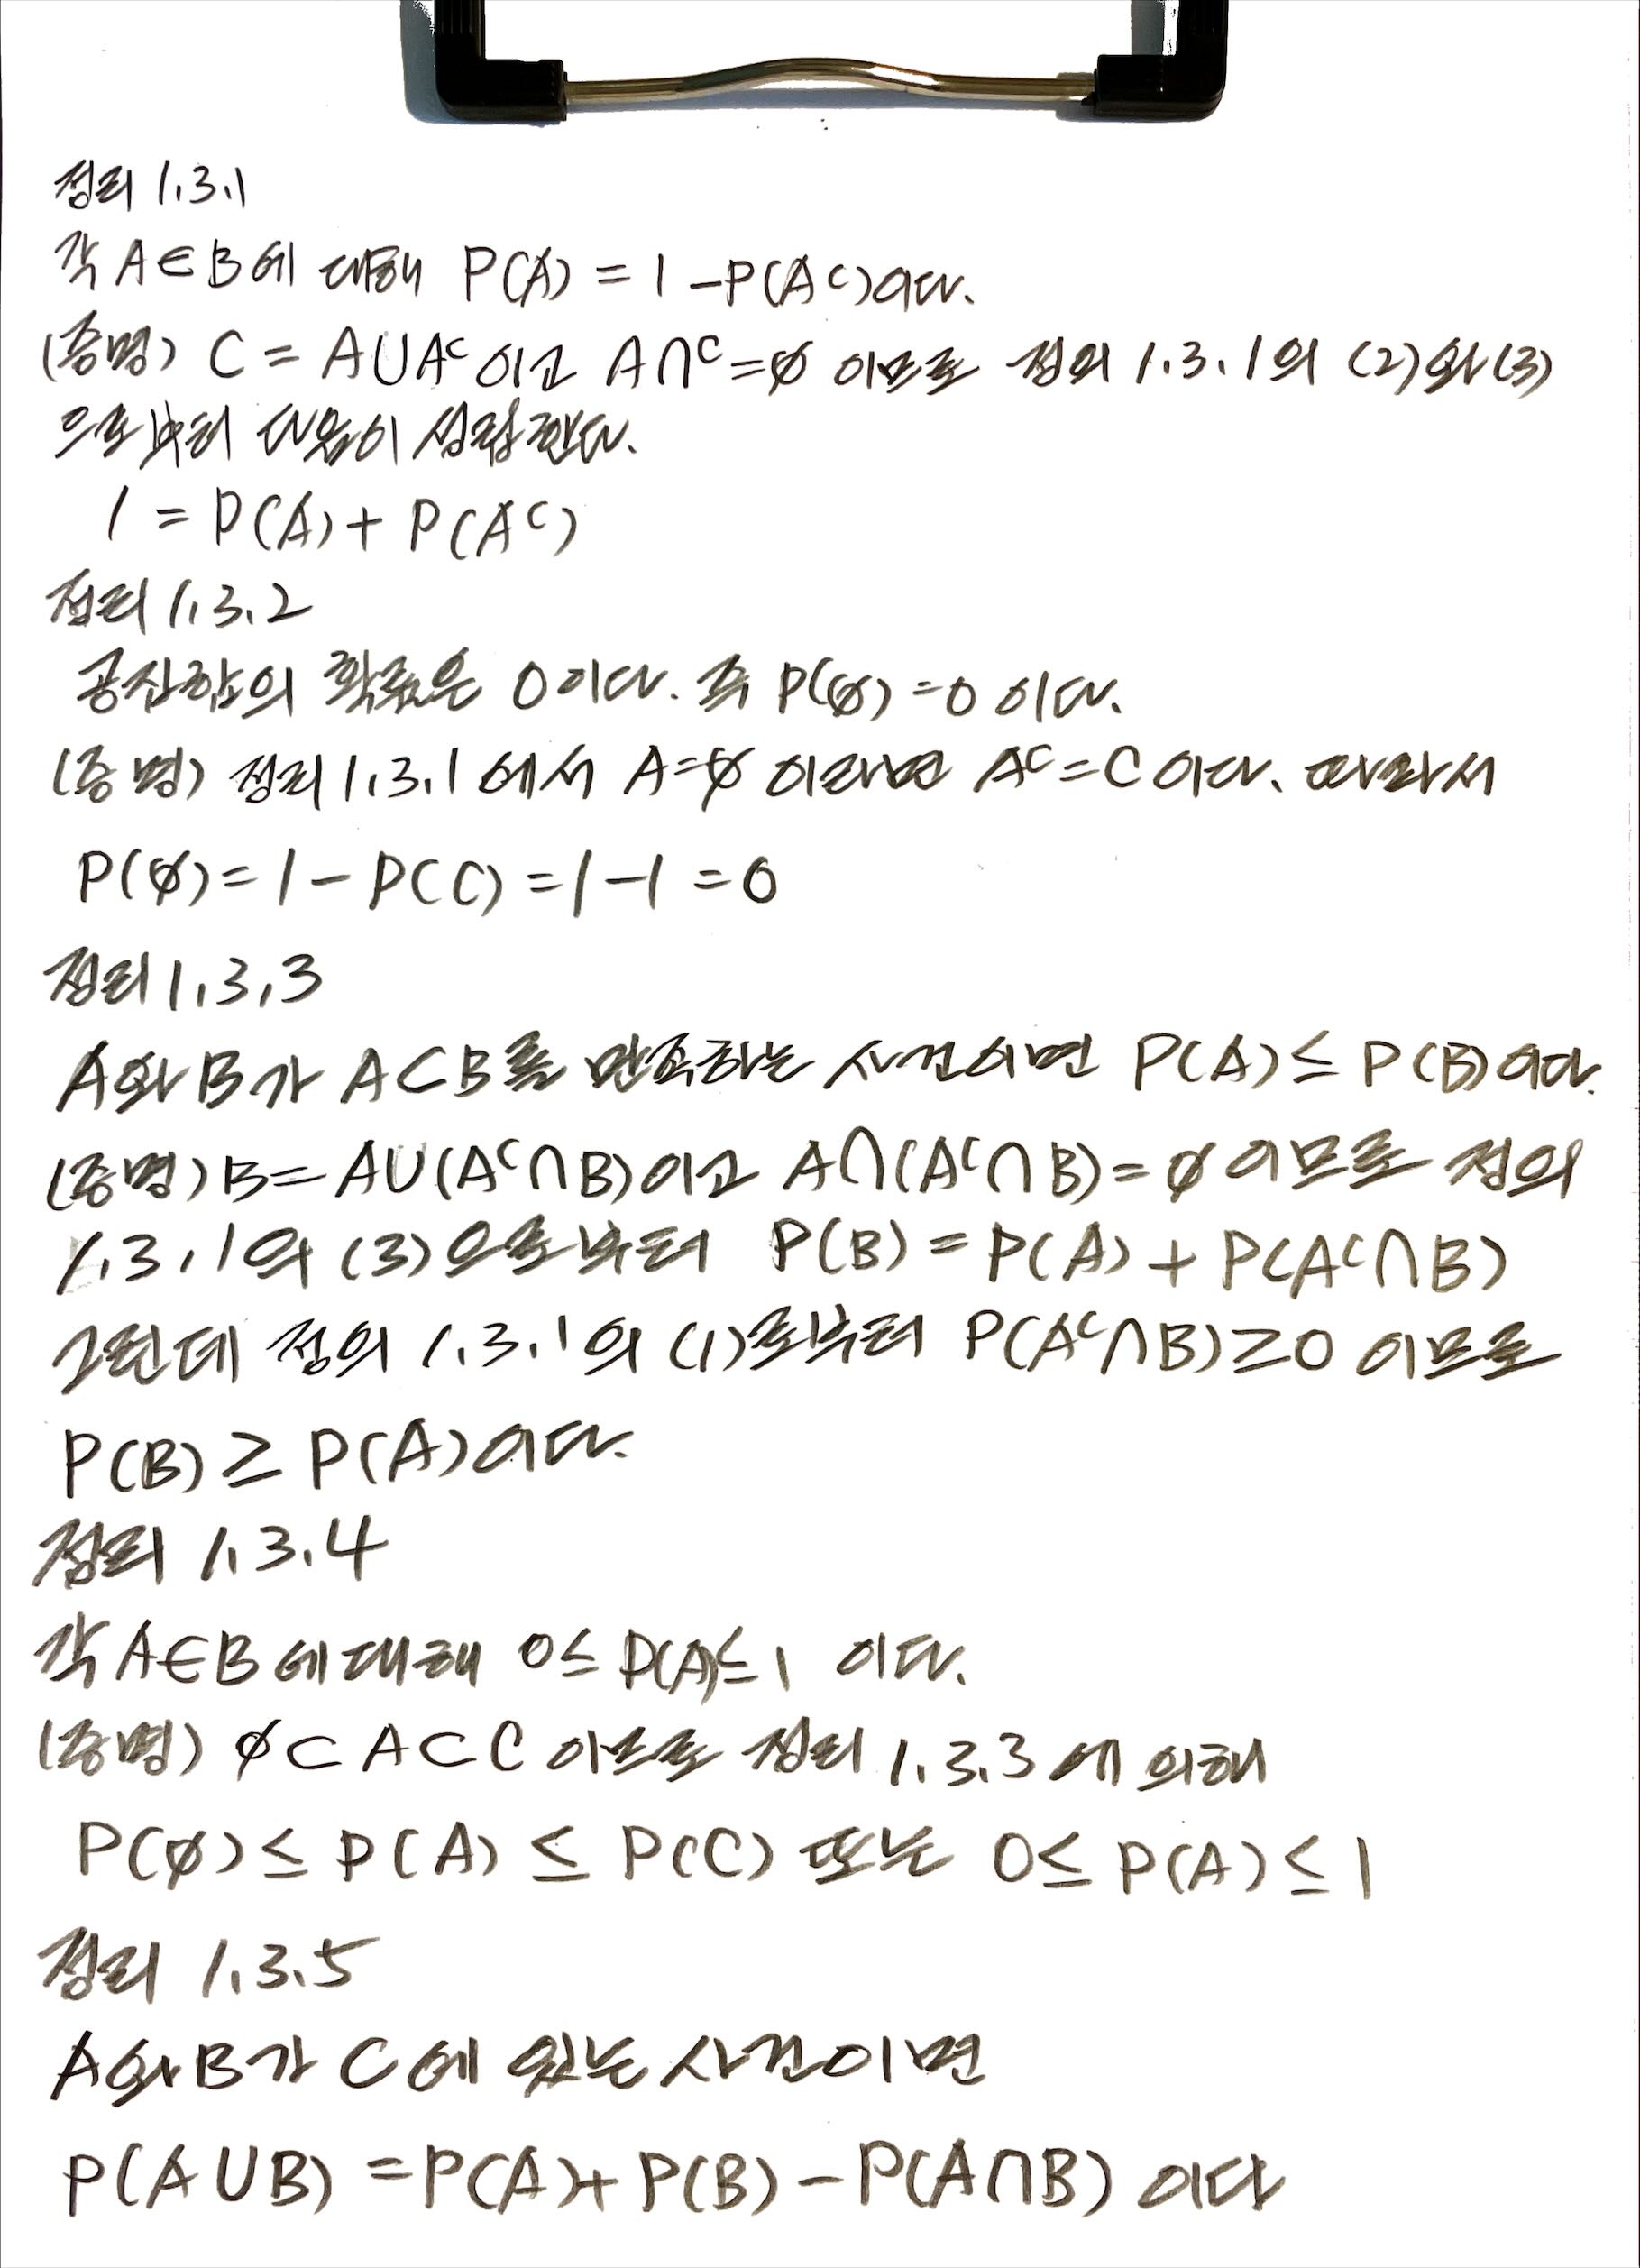 정리 1.3.1
각 A∈B에 대해 P(A) = 1-P(A^c)이다.
(증명) C = A∪A^c 이고 A∩^c=∅ 이므로 정의 1.3.1의 (2)와 (3)
으로부터 다음이 성립한다.
1 = P(A) + P(A^c)
정리 1.3.2
공집합의 확률은 0이다. 즉 P(∅)=0 이다.
(증명) 정리 1.3.1에서 A=∅ 이라면 A^c=C이다. 따라서
P(∅)=1-P(C)=1-1=0
정리 1.3.3
A와 B가 A⊂B를 만족하는 사건이면 P(A)≤P(B)이다.
(증명) B=A∪(A^c∩B)이고 A∩(A^c∩B)=∅이므로 정의
1.3.1의 (3)으로부터 P(B)=P(A)+P(A^c∩B)
그런데 정의 1.3.1의 (1)로부터 P(A^c∩B)≥0 이므로
P(B)≥P(A)이다.
정리 1.3.4
각 A∈B에 대해 0≤P(A)≤1 이다.
(증명) ∅⊂A⊂C 이므로 정리 1.3.3에 의해
P(∅)≤P(A)≤P(C) 또는 0≤P(A)≤1
정리 1.3.5
A와 B가 C에 있는 사건이면
P(A∪B)=P(A)+P(B)-P(A∩B) 이다